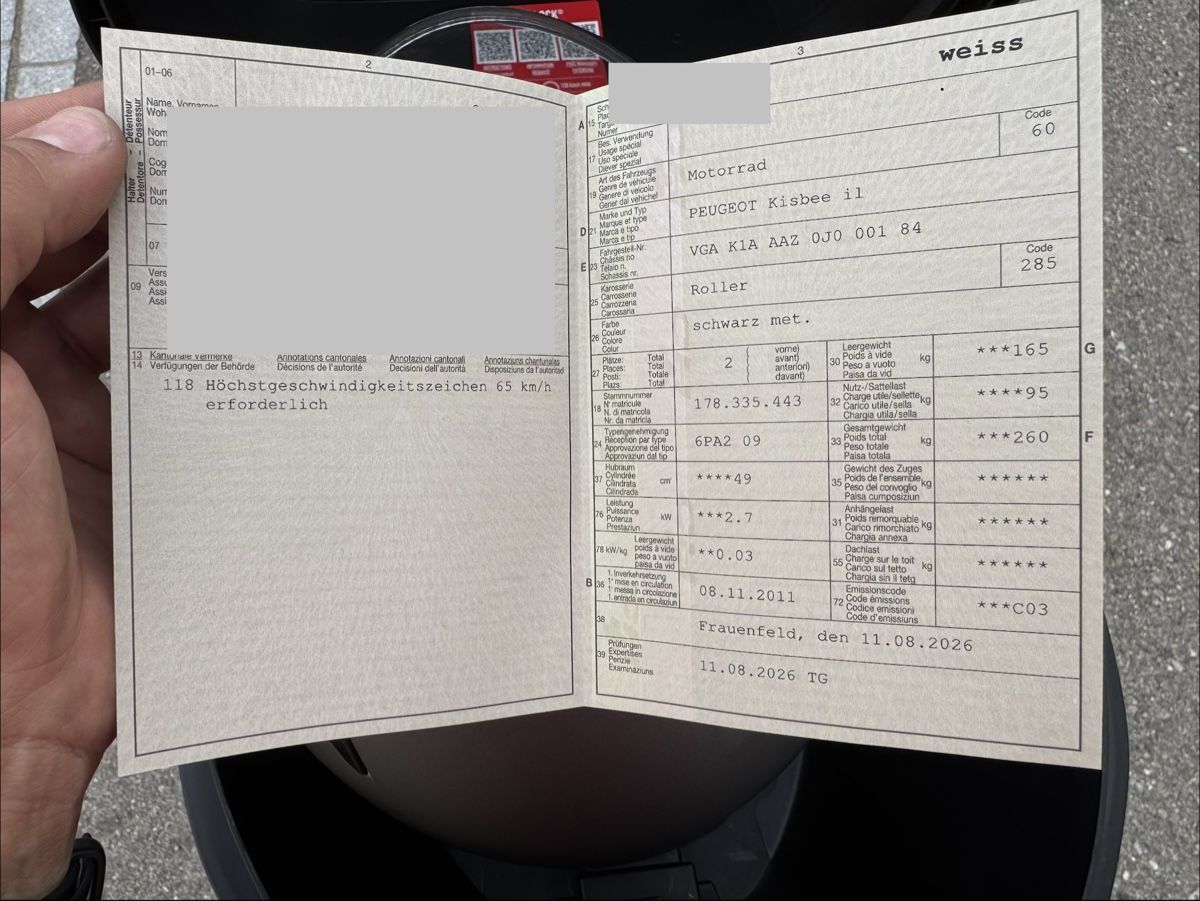 LOCK®
2
01-06
Halter - Détenteur
Detentore - Possessur
Name, Vornamen
Woh
Nom
Dom
Cog
Dom
Num
Dom
07
09
Vers
Assu
Assi
Assi
13 Kantonale Vermerke
14 Verfügungen der Behörde
Annotations cantonales
Décisions de l'autorité
Annotazioni cantonali
Decisioni dell'autorità
Annotaziuns chantunalas
Disposiziuns da l'autoritad
118 Höchstgeschwindigkeitszeichen 65 km/h
erforderlich
3
weiss
A 15
Sch
Plac
Targ
Numer
17
Bes. Verwendung
Usage spécial
Uso speciale
Diever spezial
Code
60
19
Art des Fahrzeugs
Genre de véhicule
Genere di veicolo
Gener dal vehichel
Motorrad
D 21
Marke und Typ
Marque et type
Marca e tipo
Marca e tip
PEUGEOT Kisbee il
E 23
Fahrgestell-Nr.
Châssis no
Telaio n.
Schassis nr.
VGA K1A AAZ 0J0 001 84
25
Karosserie
Carrosserie
Carrozzeria
Carossaria
Roller
Code
285
26
Farbe
Couleur
Colore
Colur
schwarz met.
27
Plätze: Total
Places: Total
Posti: Totale
Plazs: Total
2
vorne)
avant)
anteriori)
davant)
30
Leergewicht
Poids à vide
Peso a vuoto
Paisa da vid
kg
***165
G
18
Stammnummer
N° matricule
N. di matricola
Nr. da matricla
178.335.443
32
Nutz-/Sattellast
Charge utile/sellette
Carico utile/sella
Chargia utila/sella
kg
****95
24
Typengenehmigung
Réception par type
Approvazione del tipo
Approvaziun dal tip
6PA2 09
33
Gesamtgewicht
Poids total
Peso totale
Paisa totala
kg
***260
F
37
Hubraum
Cylindrée
Cilindrata
Cilindrada
cm³
****49
35
Gewicht des Zuges
Poids de l'ensemble
Peso del convoglio
Paisa cumposiziun
kg
******
76
Leistung
Puissance
Potenza
Prestaziun
kW
***2.7
31
Anhängelast
Poids remorquable
Carico rimorchiato
Chargia annexa
kg
******
78 kW/kg
Leergewicht
poids à vide
peso a vuoto
paisa da vid
**0.03
55
Dachlast
Charge sur le toit
Carico sul tetto
Chargia sin il tetg
kg
******
B 36
1. Inverkehrsetzung
1re mise en circulation
1a messa in circolazione
1. entrada en circulaziun
08.11.2011
72
Emissionscode
Code émissions
Codice emissioni
Code d'emissiuns
***C03
38
Frauenfeld, den 11.08.2026
39
Prüfungen
Expertises
Perizie
Examinaziuns
11.08.2026 TG